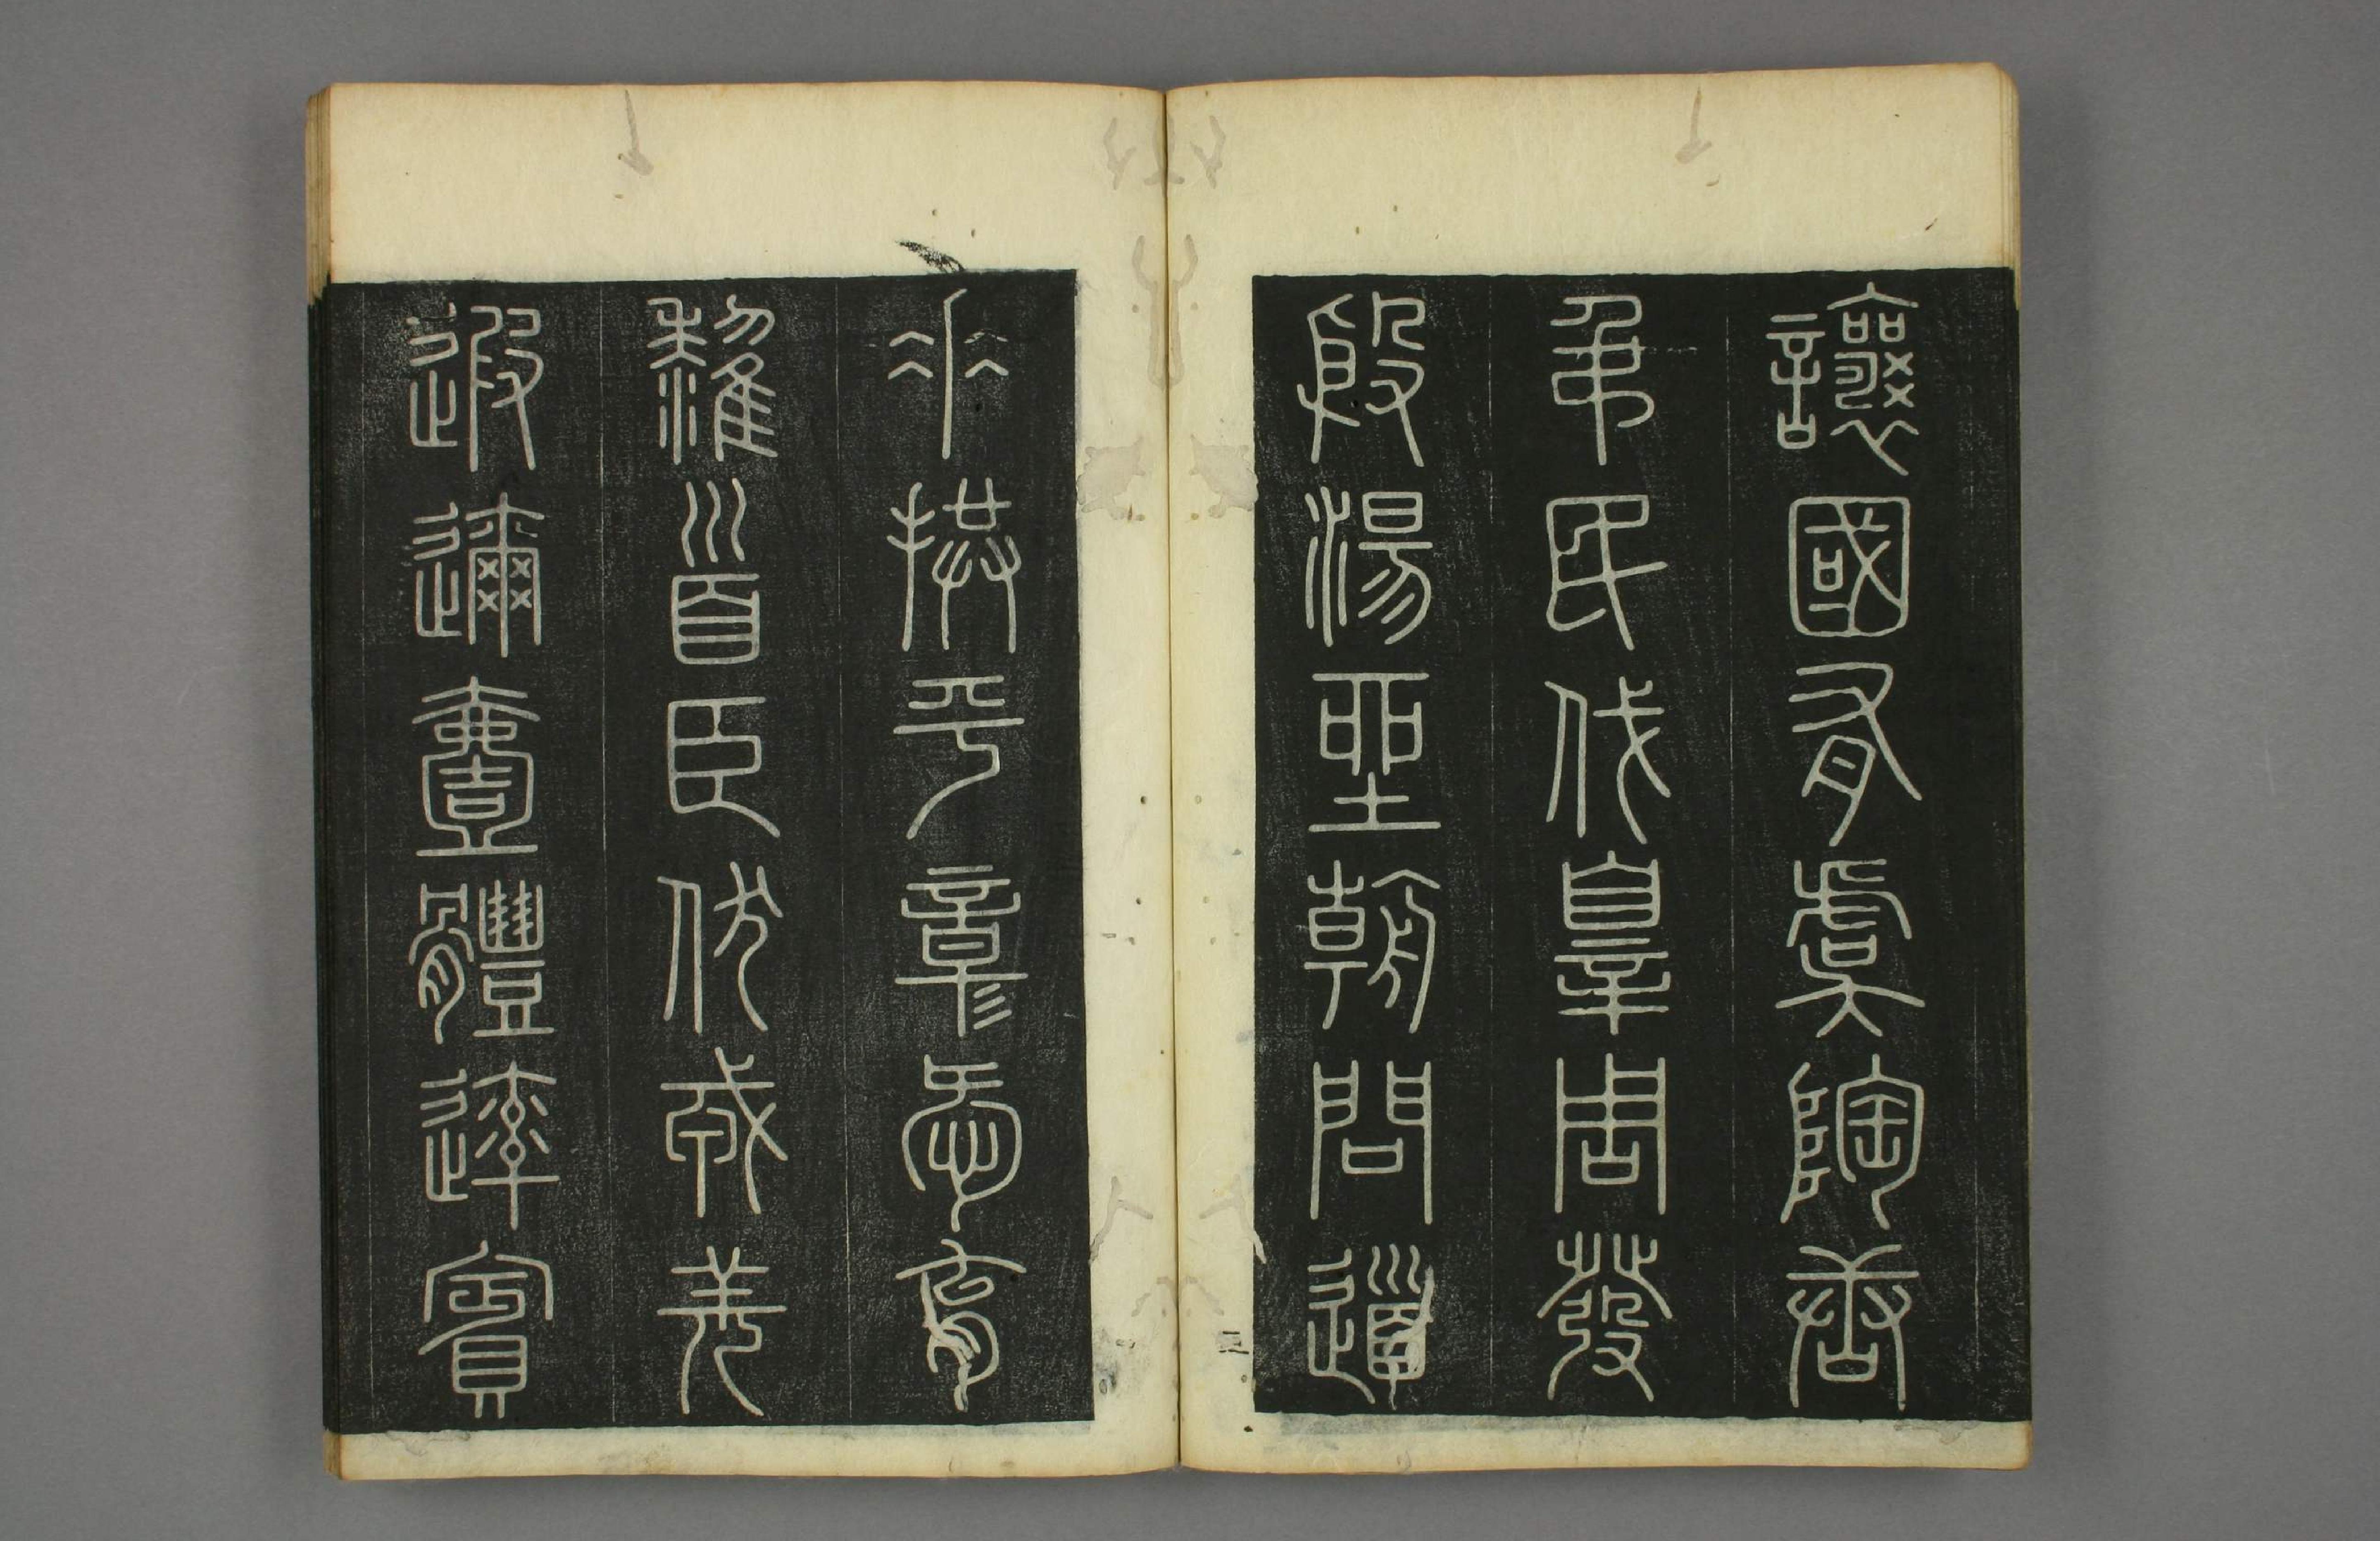 讓國有虞陶唐
弔民伐辠周發
殷湯坐朝問道
垂拱平章愛育
黎首臣伏戎羌
遐邇壹體率賓